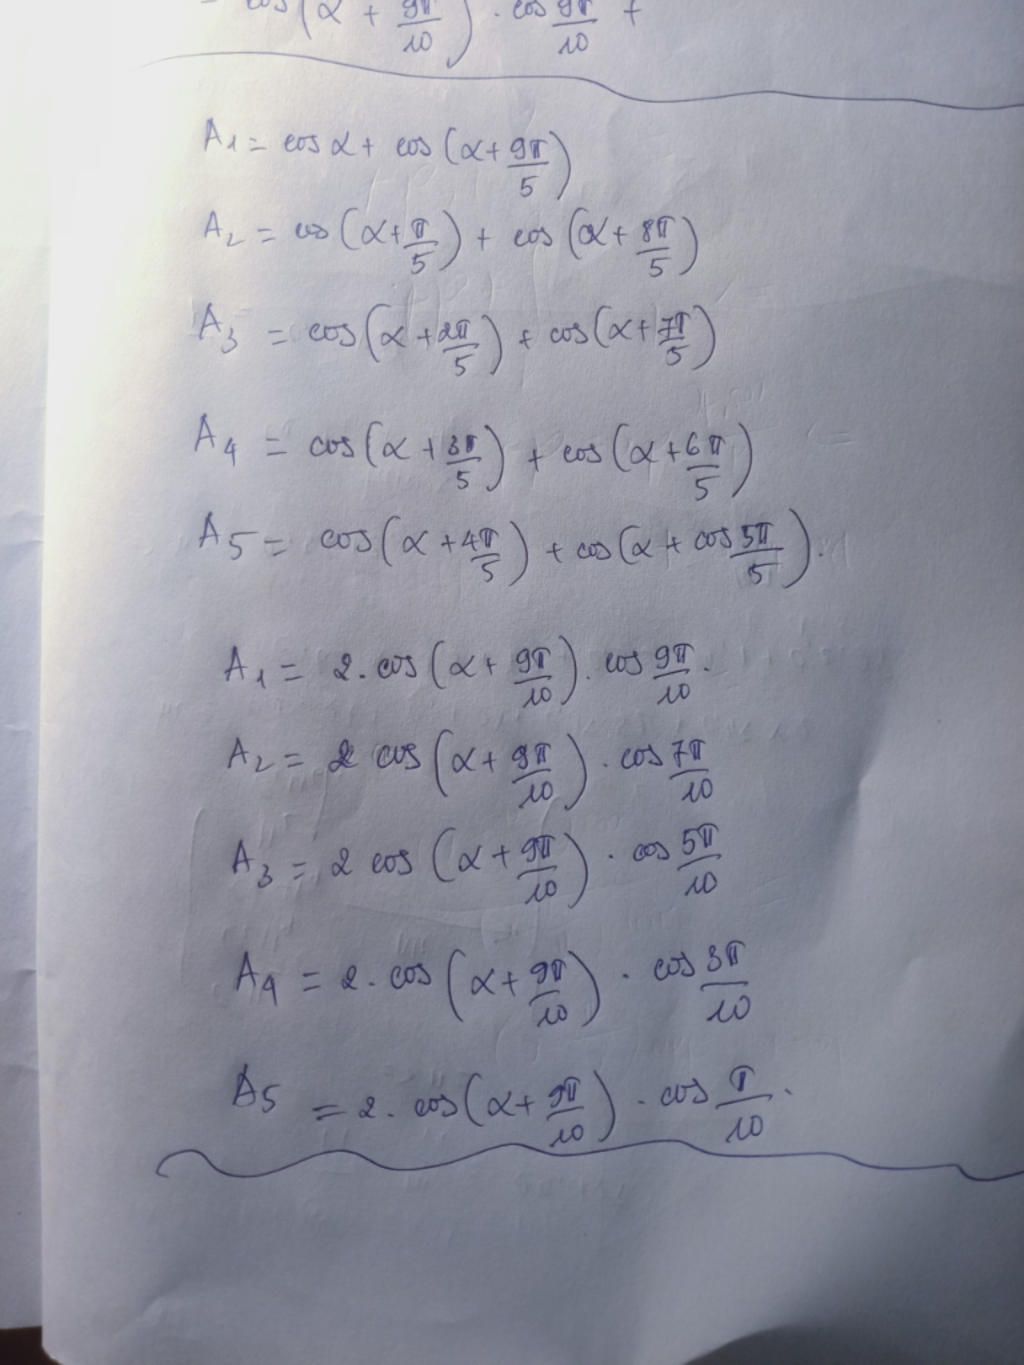 = cos(α + 9π/10) · cos 9π/10 +
A1 = cos α + cos(α + 9π/5)
A2 = cos(α + π/5) + cos(α + 8π/5)
A3 = cos(α + 2π/5) + cos(α + 7π/5)
A4 = cos(α + 3π/5) + cos(α + 6π/5)
A5 = cos(α + 4π/5) + cos(α + cos 5π/5).
A1 = 2. cos(α + 9π/10). cos 9π/10.
A2 = 2 cos(α + 9π/10) · cos 7π/10
A3 = 2 cos(α + 9π/10) · cos 5π/10
A4 = 2. cos(α + 9π/10) · cos 3π/10
A5 = 2. cos(α + 9π/10) · cos π/10.